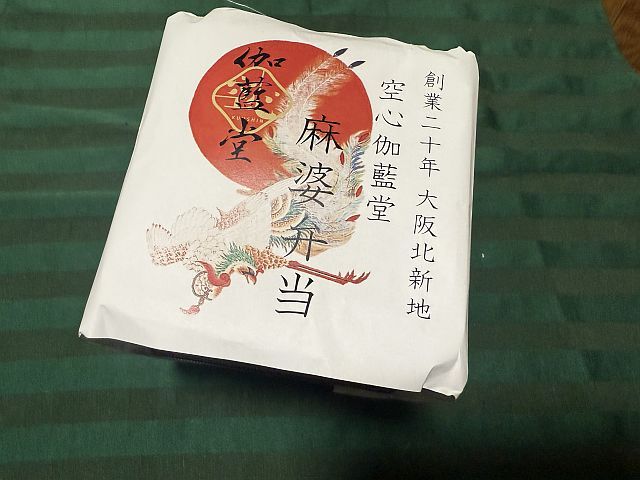 創業二十年 大阪北新地
空心伽藍堂
麻婆弁当
伽藍堂